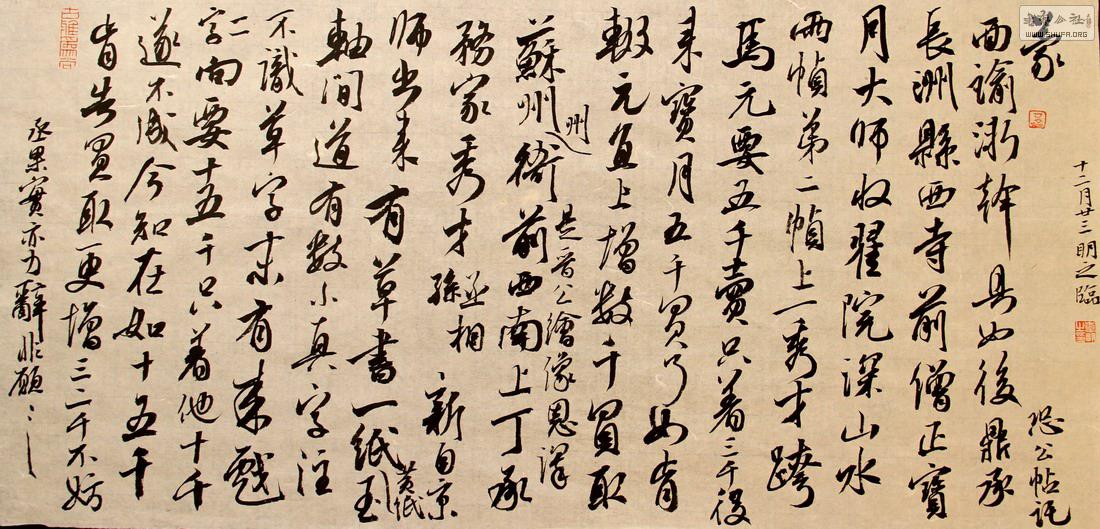 書法公社
WWW.SHUFA.ORG
十二月廿三明之臨
恐公帖託
面諭浙幹具如後鼎承
長洲縣西寺前僧正寶
月大師收翟院深山水
兩幀第二幀上一秀才跨
馬元要五千賣只著三千後
來寶月五千買了如有
輟元直上增數千買取
蘇州州衙前西南上丁承
是晉公繪像恩澤
務家秀才丞相孫新自京
師出來有草書一紙黃紙
軸間道有數小真字注
不識草字末有來戲
二字向要十五千只著他十千
遂不成今知在如十五千
肯告買取更增三二千不妨
丞果實亦力辭非願